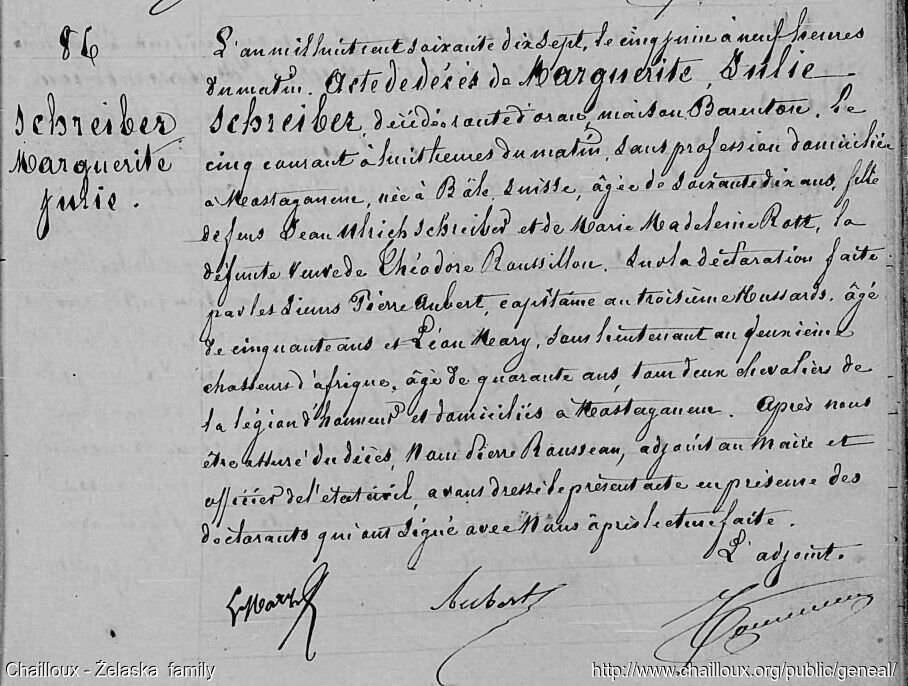 86
Schreiber
Marguerite
Julie.
L'an mil huit cent soixante dix sept, le cinq juin à neuf heures
du matin. Acte de décès de Marguerite, Julie
Schreiber, décédée route d'oran, maison Barenton, le
cinq courant à huit heures du matin, sans profession domiciliée
à Mostaganem, née à Bâle, Suisse, âgée de soixante dix ans, fille
de feus Jean Ulrich Schreiber et de Marie Madeleine Rott, la
défunte veuve de Théodore Roussillon. Sur la déclaration faite
par les sieurs Pierre Aubert, capitaine au troisième Hussards, âgé
de cinquante ans et Léon Mary, sous lieutenant au deuxième
chasseurs d'afrique, âgé de quarante ans, tous deux chevaliers de
la légion d'honneur et domiciliés à Mostaganem. Après nous
être assuré du décès, Nous Pierre Rousseau, adjoint au Maire et
officier de l'état civil, avons dressé le présent acte en présence des
déclarants qui ont signé avec Nous après lecture faite.
L'adjoint.
LMary Aubert
Chailloux - Żelaska family
http://www.chailloux.org/public/geneal/